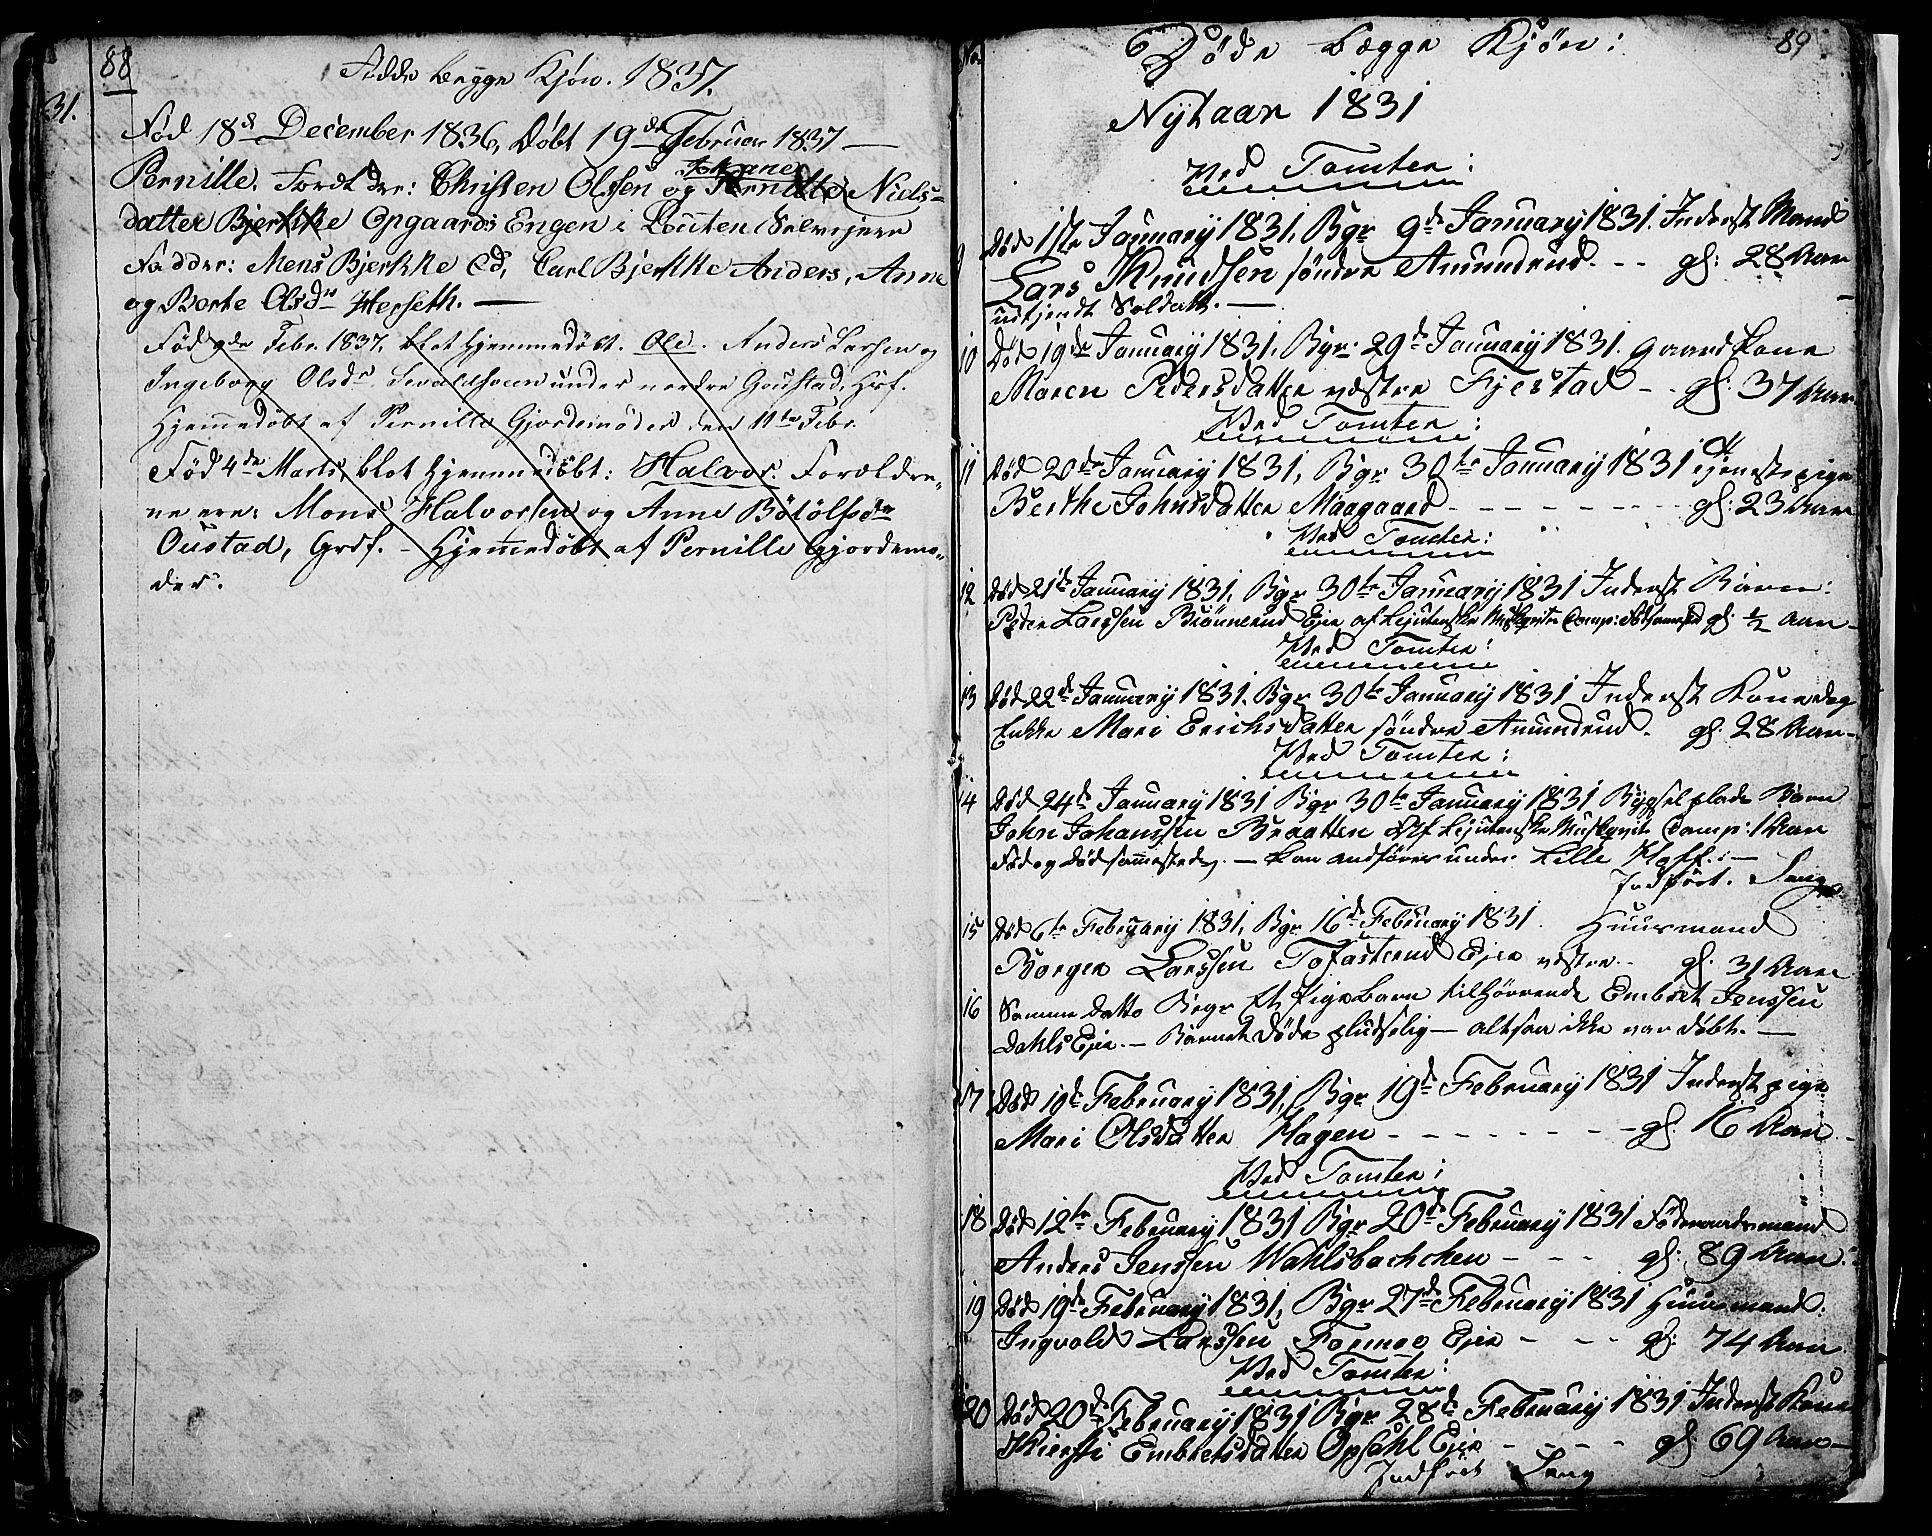 88
Fødde begge Kjøn. 1837.
31.
Fød 18d December 1836, Døbt 19de Februar 1837 —
Johane
Pernille. Foreldrer: Christen Olssen og Pernille Niels-
datter Bjerkke Opgaards Engen i Løuten Selvejere
Faddere: Mens Bjerkke Ed, Carl Bjerkke Anders, Anne
og Berte Olsdr Herseth. —
Fød 9de Febr. 1837, blot Hjemmedøbt. Ole. Anders Larsen og
Ingeborg Olsdr. under nordre Goustad, Husf.
Hjemmedøbt af Pernille Gjordemoder den 11te Febr.
Fød 4de Marts, blot Hjemmedøbt: Halvor. Forældre-
ne ere: Mons Halvorsen og Anne Botolfsdr
Oustad, Grdf. - Hjemmedøbt af Pernille Gjordemo-
der.
No.
Døde begge Kjøn:
89
Nytaar 1831
Ved Tomter:
9 Død 1te January 1831, Bgr 9de January 1831. Inderst Mand
Lars Knudsen søndre Amundrud. - - gl: 28 Aar
udtjendt Soldatt. —
10 Død 19de January 1831, Bgr. 29de January 1831. Gaard Kone
Maren Pedersdatter vestre Fjestad - - gl: 37 Aar
Ved Tomter:
11 Død 20de January 1831, Bgr 30te January 1831 tjenestepige
Berthe Johnsdatter Maagaard - - - - gl: 23 Aar
Ved Tomter:
12 Død 21de January 1831, Bgr 30te January 1831 Inderst Barn:
Peder Larssen Brønnerud Ejer af Lejutenske Musqveter Comp: gl: 1/2 Aar -
Ved Tomter:
13 Død 22de January 1831. Bgr 30te January 1831 Inderst Kone og
Enkke Mari Erichsdatter søndre Amundrud. gl: 28 Aar -
Ved Tomter:
14 Død 24de January 1831 Bgr 30te January 1831 Bygselplads Barn
John Johanssen Braatten Af Lejutenske Musqvit Comp: 1 Aar
Fød og Død sammested. — Kan andføres under Lille Hoff. —
Indført. Lang
15 Død 6te February 1831, Bgr 16de February 1831. Huusmand
Borger Larssen Tofasterud Ejer vestre - gl. 31 Aar
16 Samme Datto Begr Et Pigebarn tilhørende Embret Jenssen
Dahls Ejer. — Barnet Døde pludselig — altsaa ikke var døbt. —
17 Død 19de February 1831, Bgr 19de February 1831 Inderst pige
Mari Olsdatter Hagen - - - - - gl: 16 Aar
Ved Tomter:
18 Død 12te February 1831 Bgr 20de February 1831 Føderaadsmand
Anders Jenssen Wahlsbachchen - - - gl: 89 Aar.
19 Død 19de February 1831, Bgr 27de February 1831 Huusmand.
Ingvold Larssen Formoe Ejer - - - gl: 74 Aar
Ved Tomter:
20 Død 20de February 1831 Bgr 28de February 1831 Inderst Kone
Kiersti Embretsdatter Opsahl Ejer - - - - gl 69 Aar —
Indført Lang